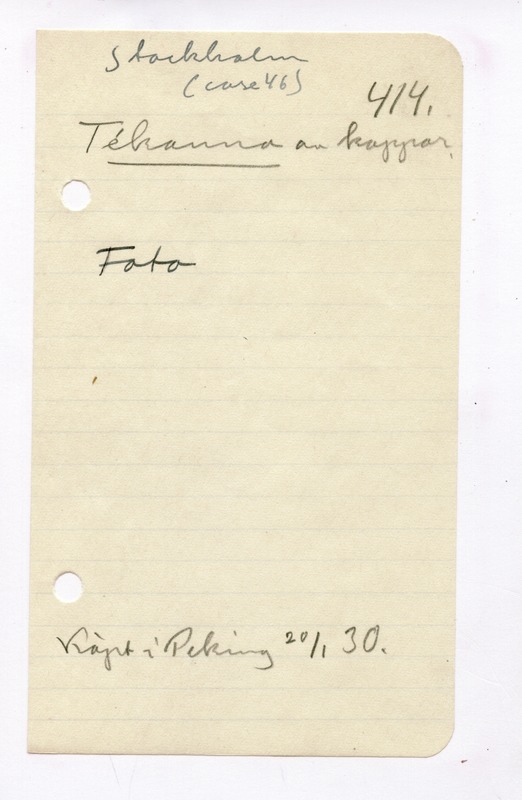 Stockholm
(case 46)
414.
Tékanna av koppar.
Foto
Köpt i Peking 20/1 30.